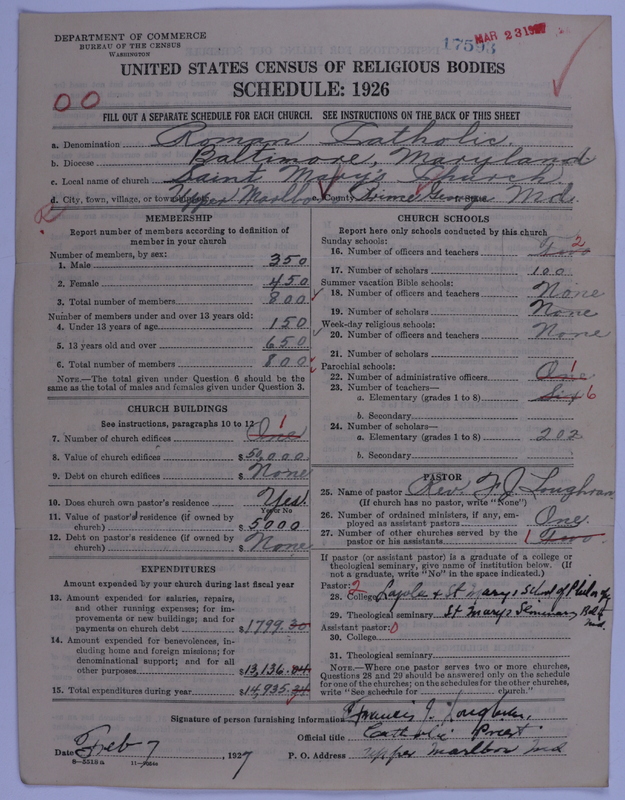 DEPARTMENT OF COMMERCE
BUREAU OF THE CENSUS
WASHINGTON
17593
MAR 23 1927
UNITED STATES CENSUS OF RELIGIOUS BODIES
SCHEDULE: 1926
00
FILL OUT A SEPARATE SCHEDULE FOR EACH CHURCH. SEE INSTRUCTIONS ON THE BACK OF THIS SHEET
a. Denomination Roman Catholic.
b. Diocese Baltimore, Maryland
c. Local name of church Saint Mary's Church
d. City, town, village, or township Upper Marlboro e. County Prince George State Md.
MEMBERSHIP
Report number of members according to definition of
member in your church
Number of members, by sex:
1. Male 350
2. Female 450
3. Total number of members 800
Number of members under and over 13 years old:
4. Under 13 years of age 150
5. 13 years old and over 650
6. Total number of members 800
NOTE.—The total given under Question 6 should be the
same as the total of males and females given under Question 3.
CHURCH BUILDINGS
See instructions, paragraphs 10 to 12
7. Number of church edifices One 1
8. Value of church edifices $50,000
9. Debt on church edifices $ None
10. Does church own pastor's residence Yes.
Yes or No
11. Value of pastor's residence (if owned by
church) $5000
12. Debt on pastor's residence (if owned by
church) $ None
EXPENDITURES
Amount expended by your church during last fiscal year
13. Amount expended for salaries, repairs,
and other running expenses; for im-
provements or new buildings; and for
payments on church debt $1799.30
14. Amount expended for benevolences, in-
cluding home and foreign missions; for
denominational support; and for all
other purposes $13,136.04
15. Total expenditures during year $14,935.34
CHURCH SCHOOLS
Report here only schools conducted by this church
Sunday schools:
16. Number of officers and teachers Two 2
17. Number of scholars 100
Summer vacation Bible schools:
18. Number of officers and teachers None
19. Number of scholars None
Week-day religious schools:
20. Number of officers and teachers None
21. Number of scholars
Parochial schools:
22. Number of administrative officers One 1
23. Number of teachers—
a. Elementary (grades 1 to 8) Six 6
b. Secondary
24. Number of scholars—
a. Elementary (grades 1 to 8) 202
b. Secondary
PASTOR
25. Name of pastor Rev. F. J. Loughran
(If church has no pastor, write "None")
26. Number of ordained ministers, if any, em-
ployed as assistant pastors One.
27. Number of other churches served by the
pastor or his assistants 1 Two
If pastor (or assistant pastor) is a graduate of a college or
theological seminary, give name of institution below. (If
not a graduate, write "No" in the space indicated.)
Pastor: 2
28. College Loyola & St Mary's School of Philosophy
29. Theological seminary St Mary's Seminary, Balto Md.
Assistant pastor: 0
30. College
31. Theological seminary
NOTE.—Where one pastor serves two or more churches,
Questions 28 and 29 should be answered only on the schedule
for one of the churches; on the schedules for the other churches,
write "See schedule for church."
Signature of person furnishing information Francis J. Loughran
Official title Catholic Priest
Date Feb 7, 1927 P. O. Address Upper Marlboro Md
8—5518a